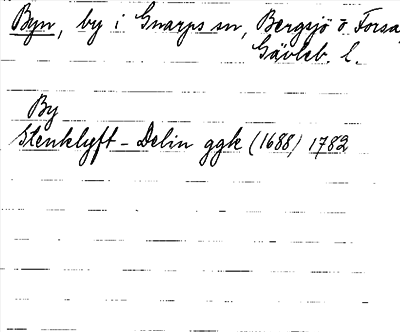 Byn, by i Gnarps sn, Bergsjö o. Forsa,
Gävleb. l.
By
Stenklyft - Delin ggk (1688) 1782